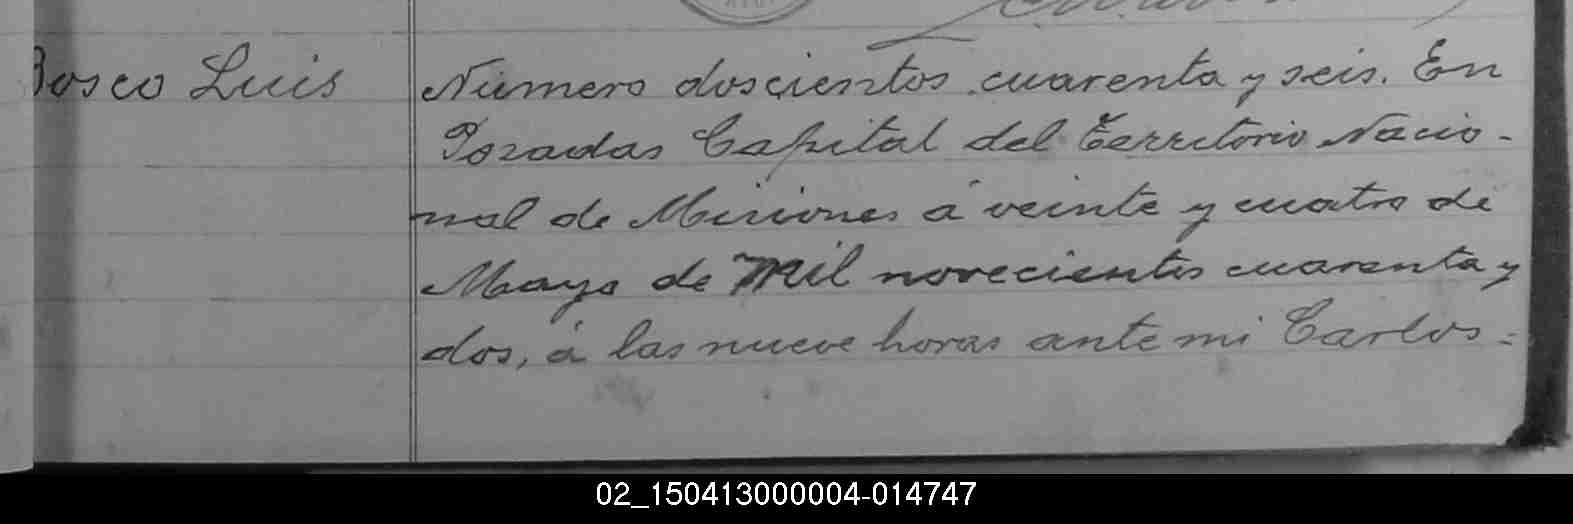 Bosco Luis
Número doscientos cuarenta y seis. En
Posadas Capital del Territorio Nacio-
nal de Misiones á veinte y cuatro de
Mayo de Mil novecientos cuarenta y
dos, á las nueve horas ante mi Carlos=
02_150413000004-014747